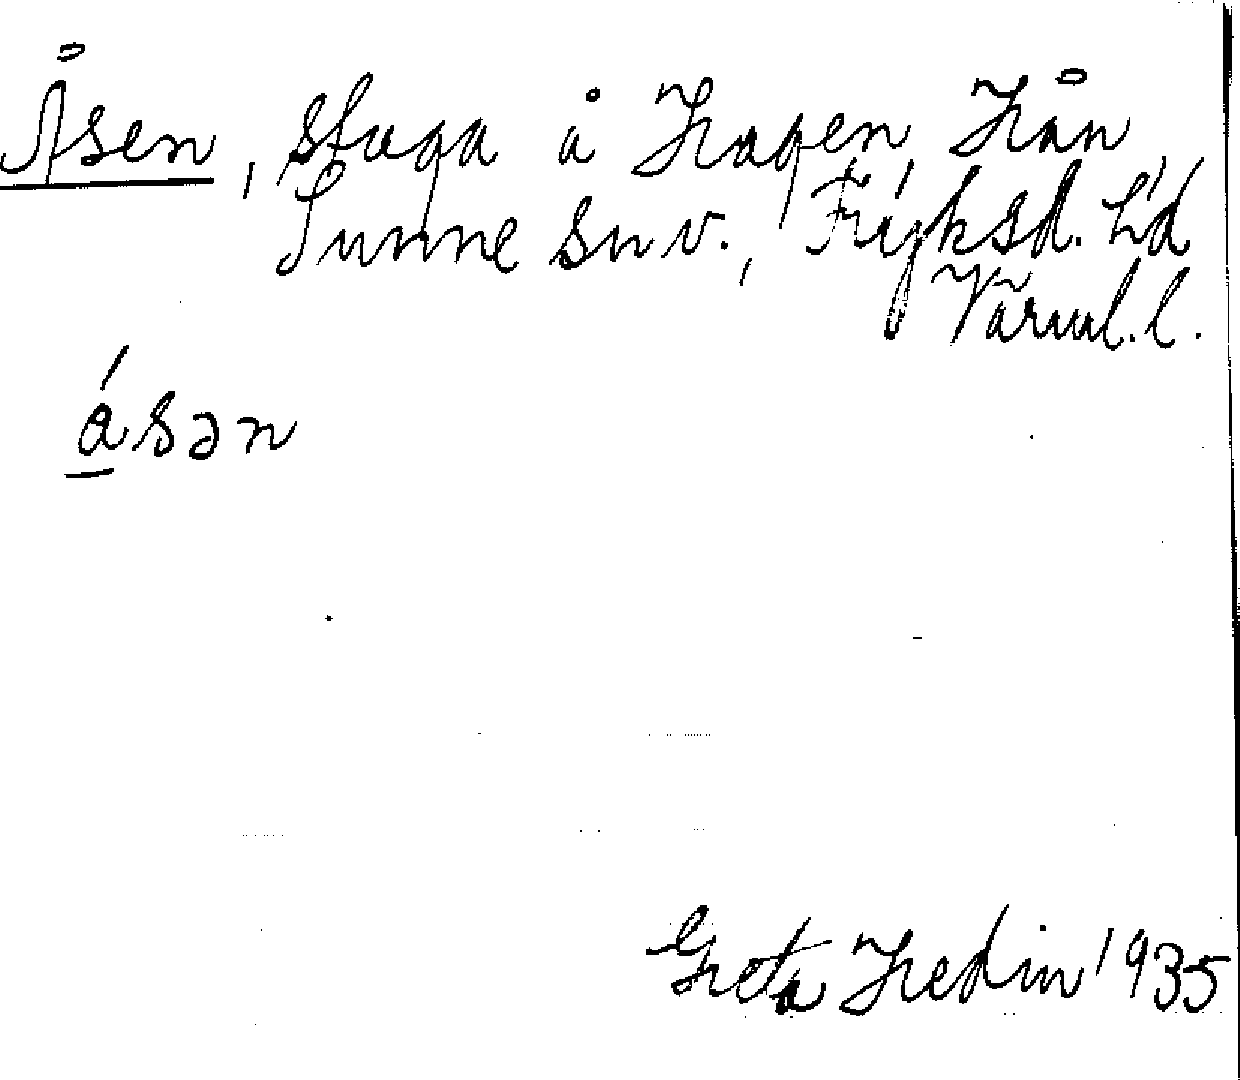 Åsen, stuga å Hagen, Hån,
Sunne sn v., Fryksd. h'd
Värml. l.
ásən
Greta Hedin 1935